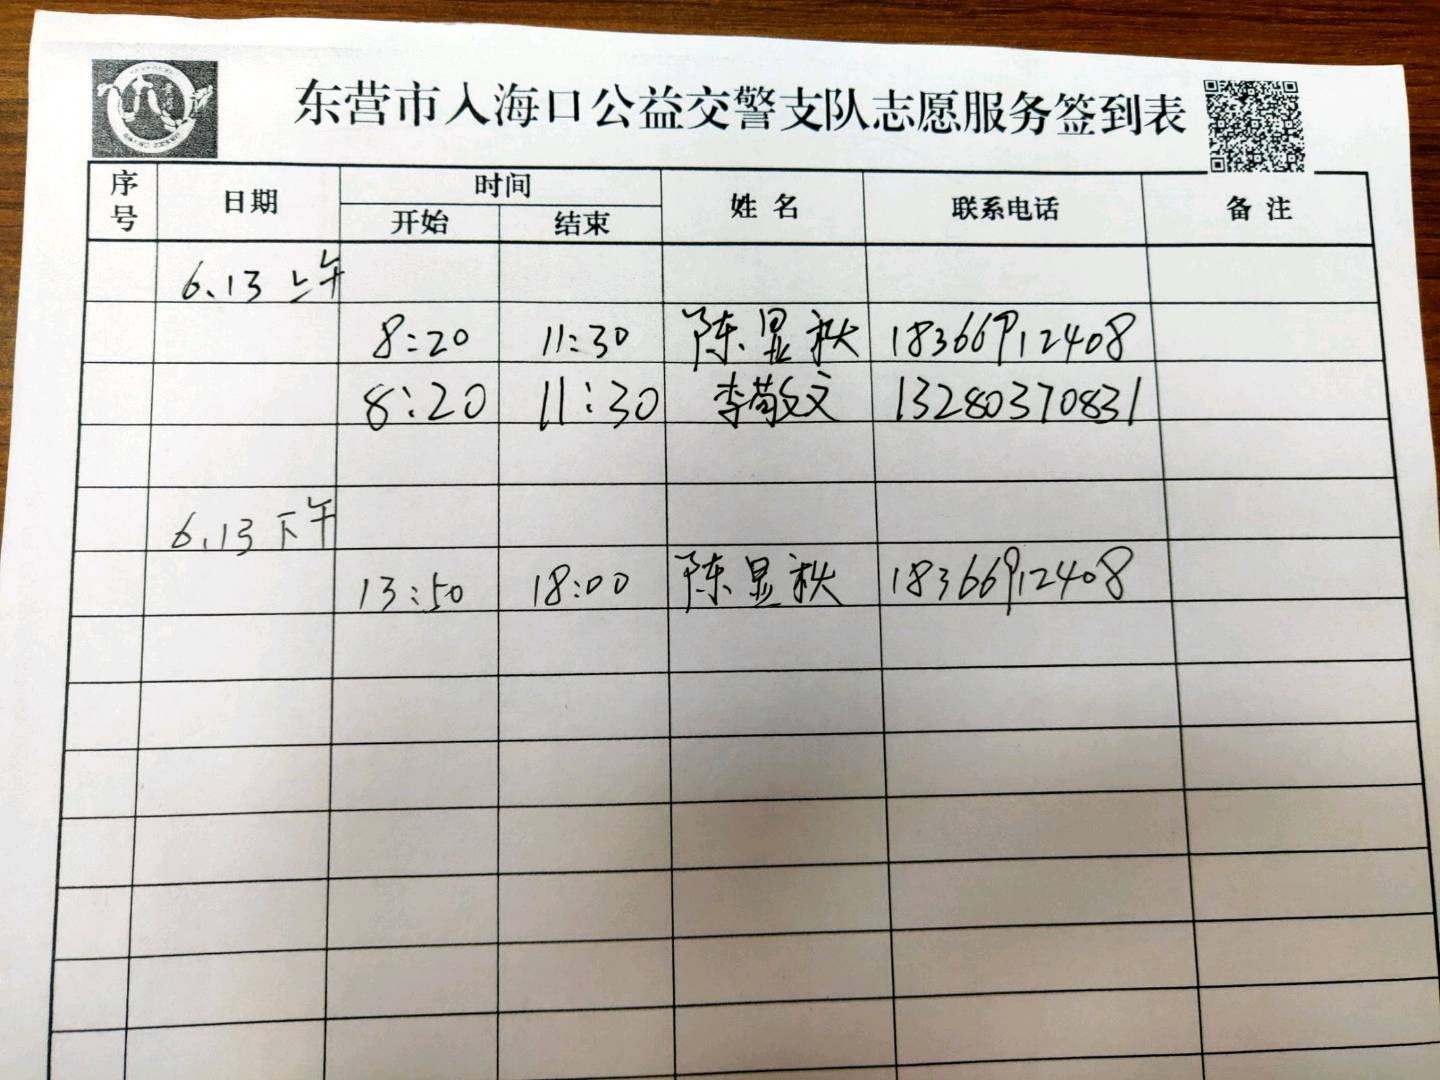 东营市入海口公益交警支队志愿服务签到表
序号 日期 时间 姓名 联系电话 备注
开始 结束
6.13 上午
8:20 11:30 陈显秋 18366912408
8:20 11:30 李敬文 13280370831
6.13 下午
13:50 18:00 陈显秋 18366912408